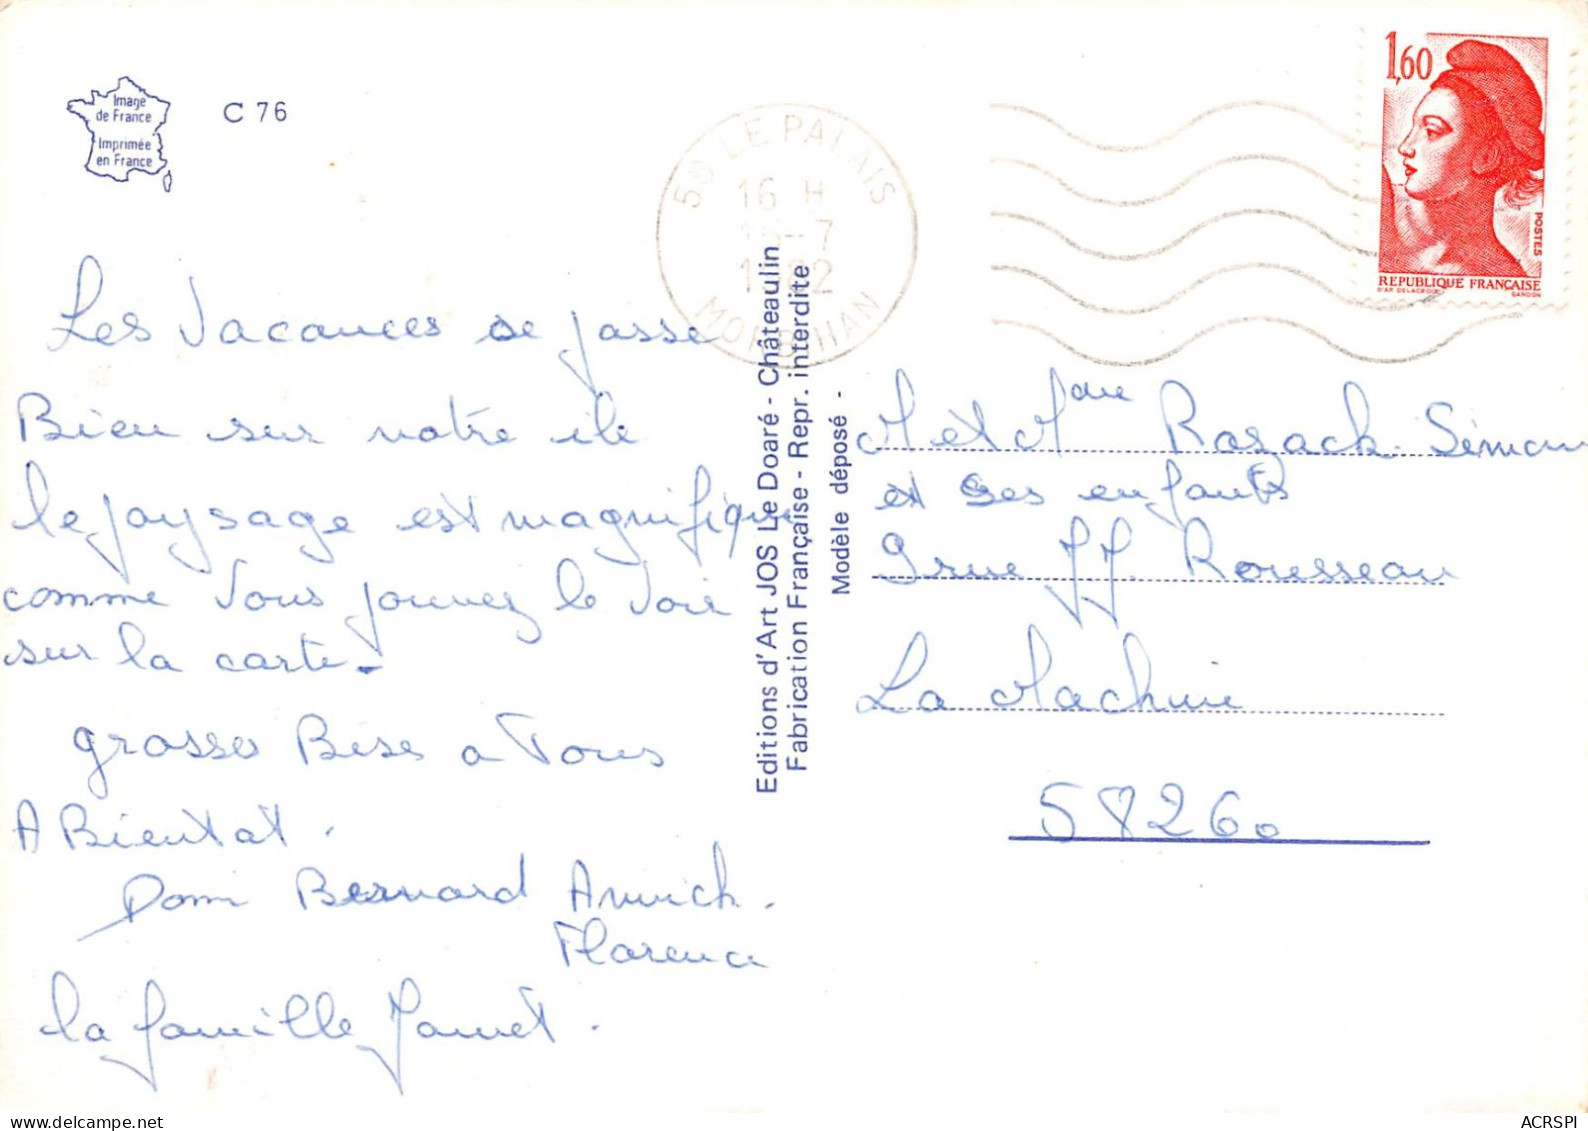 Image
de France
Imprimée
en France
C 76
Les Vacances se passe
Bien sur notre ile
le paysage est magnifique
comme vous pouvez le voir
sur la carte -
grosses Bises a Tous
A Bientat.
Domi Bernard Annick.
Florence
la famille Jamet.
Editions d'Art JOS Le Doaré - Châteaulin
Fabrication Française - Repr. interdite
Modèle déposé -
LE PALAIS
16 H
MORBIHAN
1,60
POSTES
REPUBLIQUE FRANÇAISE
D'AP. DELACROIX
GANDON
M et Mme Rozack Simon
et Ses enfants
9 rue JJ. Rousseau
La Machine
58260
www.delcampe.net
ACRSPI